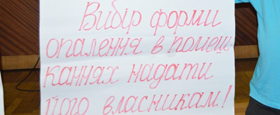 Вибір форми
опалення в помеш
каннях надати
його власникам!